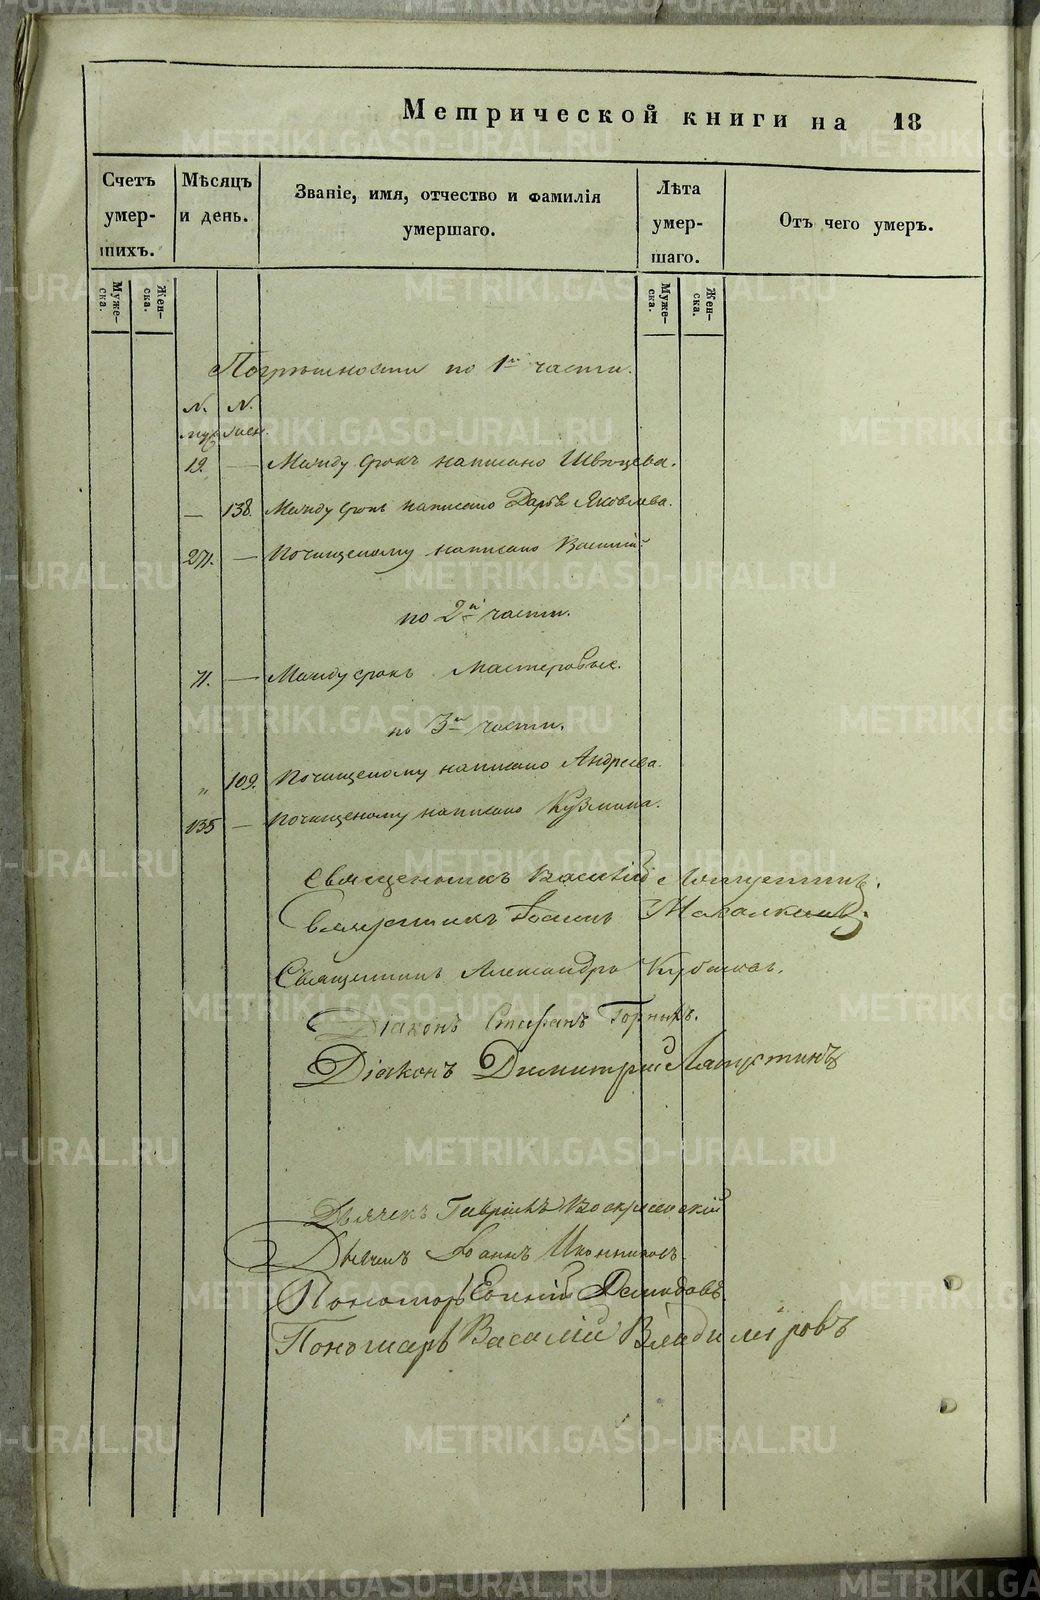 Метрической книги на 18
Счетъ умер- шихъ.
Мѣсяцъ и день.
Званіе, имя, отчество и фамилія умершаго.
Лѣта умер- шаго.
Отъ чего умеръ.
Муже- ска.
Жен- ска.
Муже- ска.
Жен- ска.
Погрѣшности по 1й части.
N. N.
муж. жен.
12. — Между строкъ написано Швецева.
— 138. Между строкъ написано Дарья Яковлева.
271. — Почищеному написано Василій
по 2й части.
71. — Между строкъ мастеровые.
по 3й части.
„ 109. Почищеному написано Андреева.
135 — Почищеному написано Кузмина.
Священникъ Василій Ляпустинъ.
Священникъ Іоаннъ
Священникъ Александръ
Діаконъ Стефанъ Горныхъ.
Діаконъ Димитрій Ляпустинъ
Дьячекъ Гавріилъ Воскресенскій
Дьячекъ Іоаннъ Иконниковъ
Пономарь Евгеній Демидовъ.
Пономарь Василій Владиміровъ
METRIKI.GASO-URAL.RU